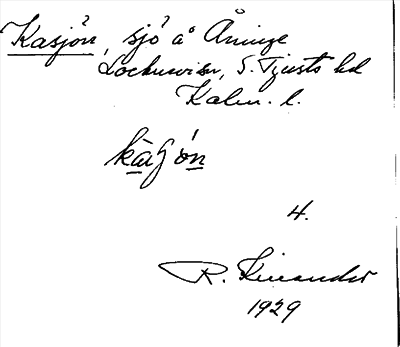 Kasjön, sjö å Åninge
Locknevisn, S. Tjusts hd
Kalm. l.
4.
R. Linander
1929